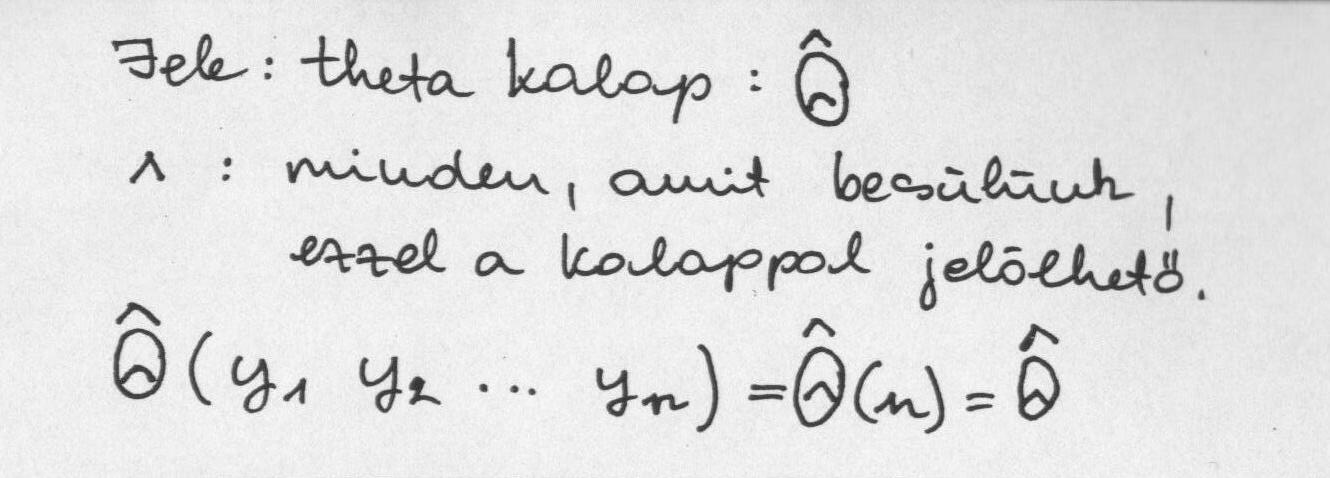 Jele: theta kalap: Θ̂
^ : minden, amit becsülünk,
ezzel a kalappal jelölhető.
Θ̂(y₁ y₂ ... yₙ) = Θ̂(n) = Θ̂